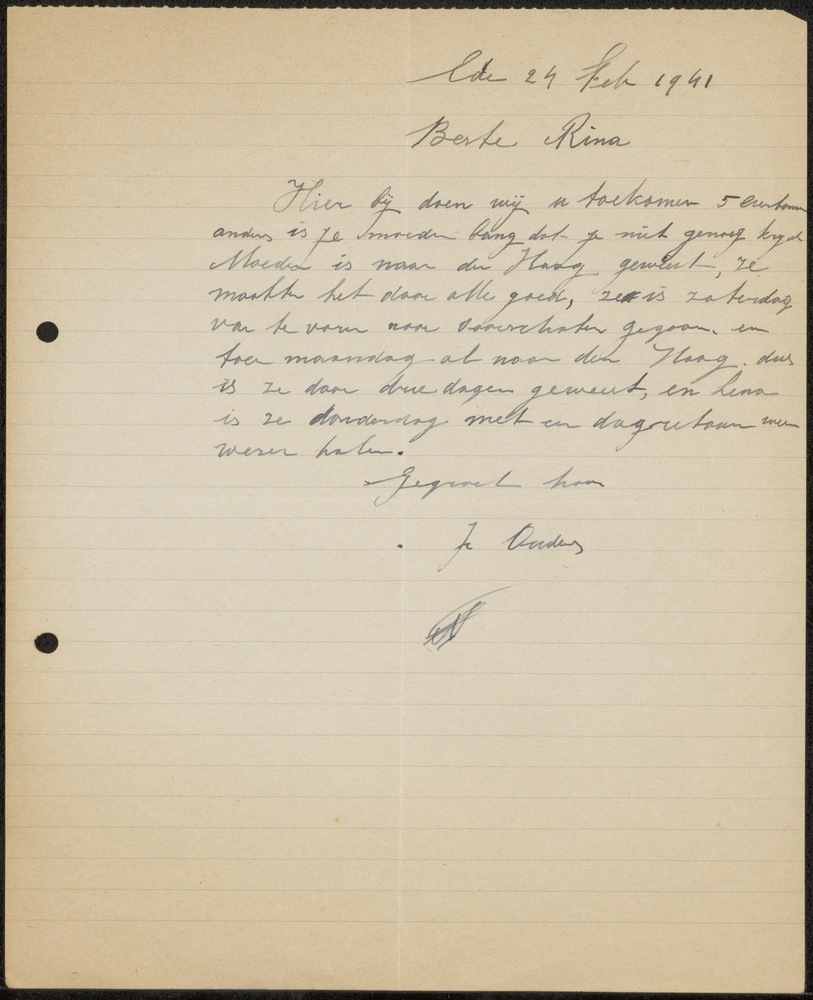 Ede 24 Feb 1941
Beste Rina
Hier bij doen wij u toekomen 5
anders is je moeder bang dat je niet genoeg krijgt
Moeder is naar den Haag geweest, ze
maakten het daar alle goed, ze is zaterdag
van te voren naar voorschoten gegaan. en
toen maandag al naar den Haag. dus
is ze daar drie dagen geweest, en Lena
is ze donderdag met een dagretour
wezen halen.
Gegroet hoor
Je Ouders